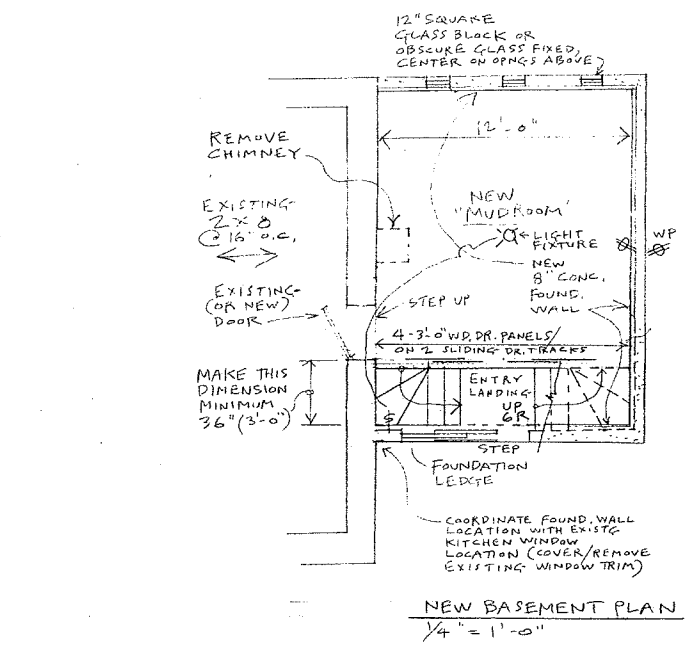 12" SQUARE
GLASS BLOCK OR
OBSCURE GLASS FIXED,
CENTER ON OPNGS ABOVE
12'-0"
REMOVE
CHIMNEY
EXISTING
2 X 8
@ 16" O.C.
NEW
"MUDROOM"
LIGHT
FIXTURE
WP
NEW
8" CONC.
FOUND.
WALL
EXISTING
(OR NEW)
DOOR
STEP UP
4-3'-0" WD. DR. PANELS
ON 2 SLIDING DR. TRACKS
MAKE THIS
DIMENSION
MINIMUM
36" (3'-0")
ENTRY
LANDING
UP
6R
$
STEP
FOUNDATION
LEDGE
COORDINATE FOUND. WALL
LOCATION WITH EXIST'G
KITCHEN WINDOW
LOCATION (COVER/REMOVE
EXISTING WINDOW TRIM)
NEW BASEMENT PLAN
1/4" = 1'-0"